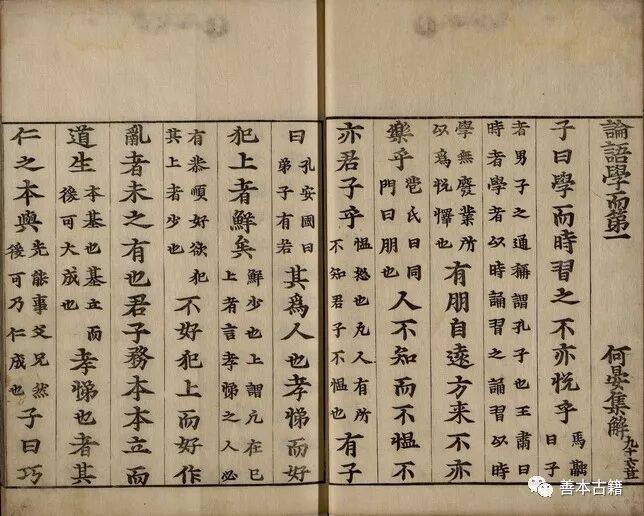 論語學而第一　何晏集解凡十六章
子曰學而時習之不亦悅乎馬融曰子
者男子之通稱謂孔子也王肅曰
時者學者以時誦習之誦習以時
學無廢業所以爲悅懌也有朋自遠方來不亦
樂乎苞氏曰同門曰朋也人不知而不慍不
亦君子乎慍怒也凡人有所不知君子不慍也有子
曰孔安國曰弟子有若其爲人也孝悌而好
犯上者鮮矣鮮少也上謂凡在己上者言孝悌之人必
有恭順好欲犯其上者少也不好犯上而好作
亂者未之有也君子務本本立而
道生本基也基立而後可大成也孝悌也者其
仁之本與先能事父兄然後可乃仁成也子曰巧
善本古籍